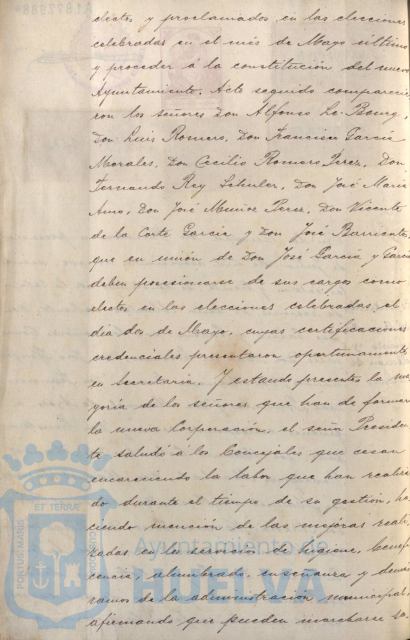 electos y proclamados, en las elecciones
celebradas en el més de Mayo último
y proceder á la constitución del nuevo
Ayuntamiento. Acto seguido comparecie
ron los señores Don Alfonso Le-Bourg,
Don Luis Romero, Don Francisco García
Morales, Don Cecilio Romero Pérez, Don
Fernando Rey Schuler, Don José Marín
Amo, Don José Muñoz Perez, Don Vicente
de la Corte García y Don José Barriento,
que en unión de Don José García y García
deben posesionarse de sus cargos como
electos en las elecciones celebradas el
día dos de Mayo, cuyas certificaciones
credenciales presentaron oportunamente
en Secretaría. Y estando presentes la ma
yoría de los señores que han de formar
la nueva Corporación, el señor Presiden
te saludó á los Concejales que cesan
encareciendo la labor que han realiza
do durante el tiempo de su gestión, ha
ciendo mención de las mejoras reali
zadas en los servicios de higiene, benefi
cencia, alumbrado, enseñanza y demás
ramos de la administración municipal,
afirmando que pueden marcharse
A1872988
PORTUS MARIS
ET TERRÆ
CUSTODIA
Ayuntamiento de
HUELVA